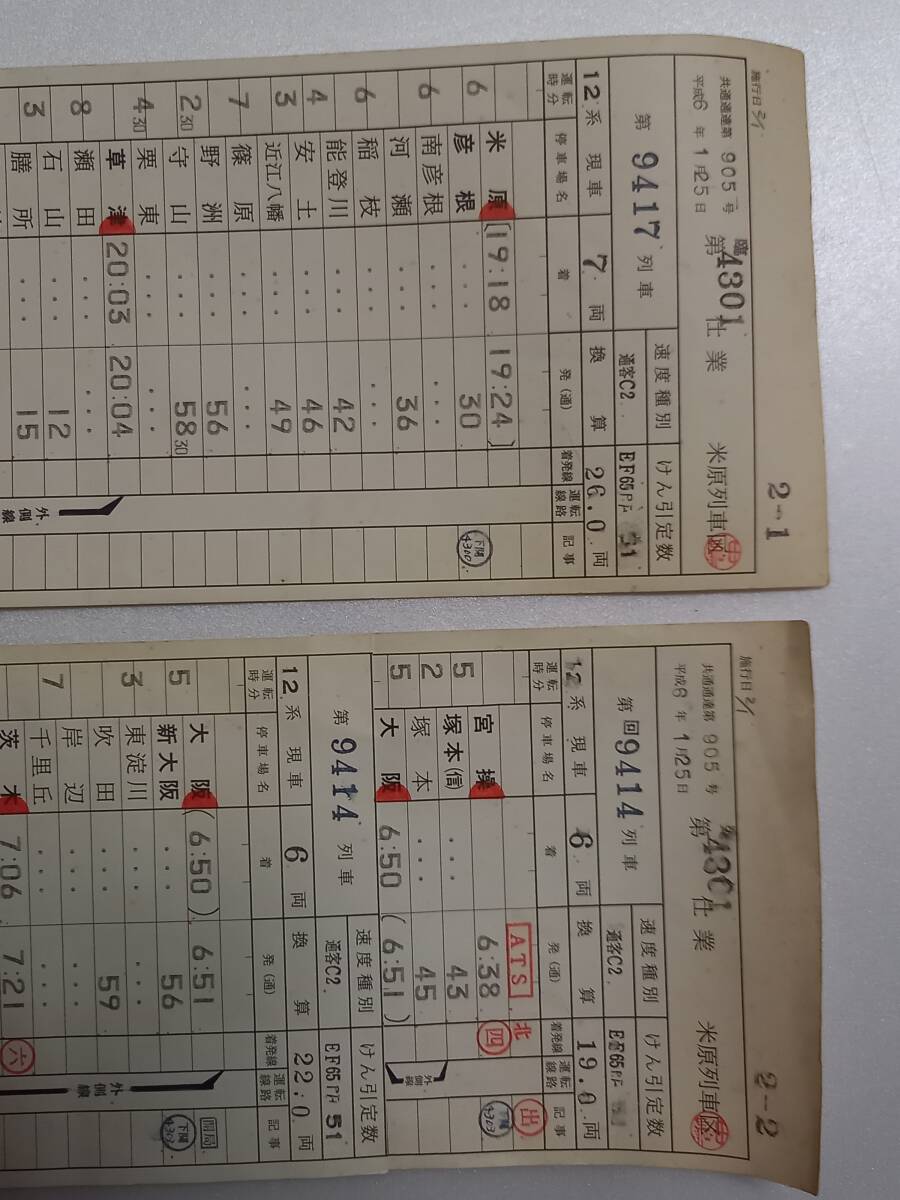 2-1
施行日 2/1
共通通達第 905 号
平成 6 年 1 月 25 日
臨
第 4301 仕業
米原列車区
第 9417 列車
速度種別
けん引定数
通客C2
EF65PF 51
12 系 現車 7 両
換算 26.0 両
運転時分
停車場名
着
発(通)
着発線
運転線路
記事
米原 (19:18 19:24)
6 彦根 ... 30
南彦根 ... ...
6 河瀬 ... 36
稲枝 ... ...
6 能登川 ... 42
4 安土 ... 46
3 近江八幡 ... 49
篠原 ... ...
7 野洲 ... 56
2 30 守山 ... 58 30
栗東 ... ...
4 30 草津 20:03 20:04
瀬田 ... ...
8 石山 ... 12
3 膳所 ... 15
外側線
下関
4300
2-2
施行日 2/1
共通通達第 905 号
平成 6 年 1 月 25 日
第 4301 仕業
米原列車区
第 回9414 列車
速度種別
けん引定数
通客C2
EF65PF
12 系 現車 6 両
換算 19.0 両
運転時分
停車場名
着
発(通)
着発線
運転線路
記事
ATS 北
出
宮操 6:38 四
5 塚本(信) ... 43
2 塚本 ... 45
5 大阪 6:50 (6:51)
外側線
下関
第 9414 列車
速度種別
けん引定数
通客C2
EF65PF 51
12 系 現車 6 両
換算 22.0 両
運転時分
停車場名
着
発(通)
着発線
運転線路
記事
大阪 (6:50) 6:51
開局
5 新大阪 ... 56
下関
東淀川 ... ...
3 吹田 ... 59
岸辺 ... ...
千里丘 ... ...
7 茨木 7:06 7:21 六
外側線